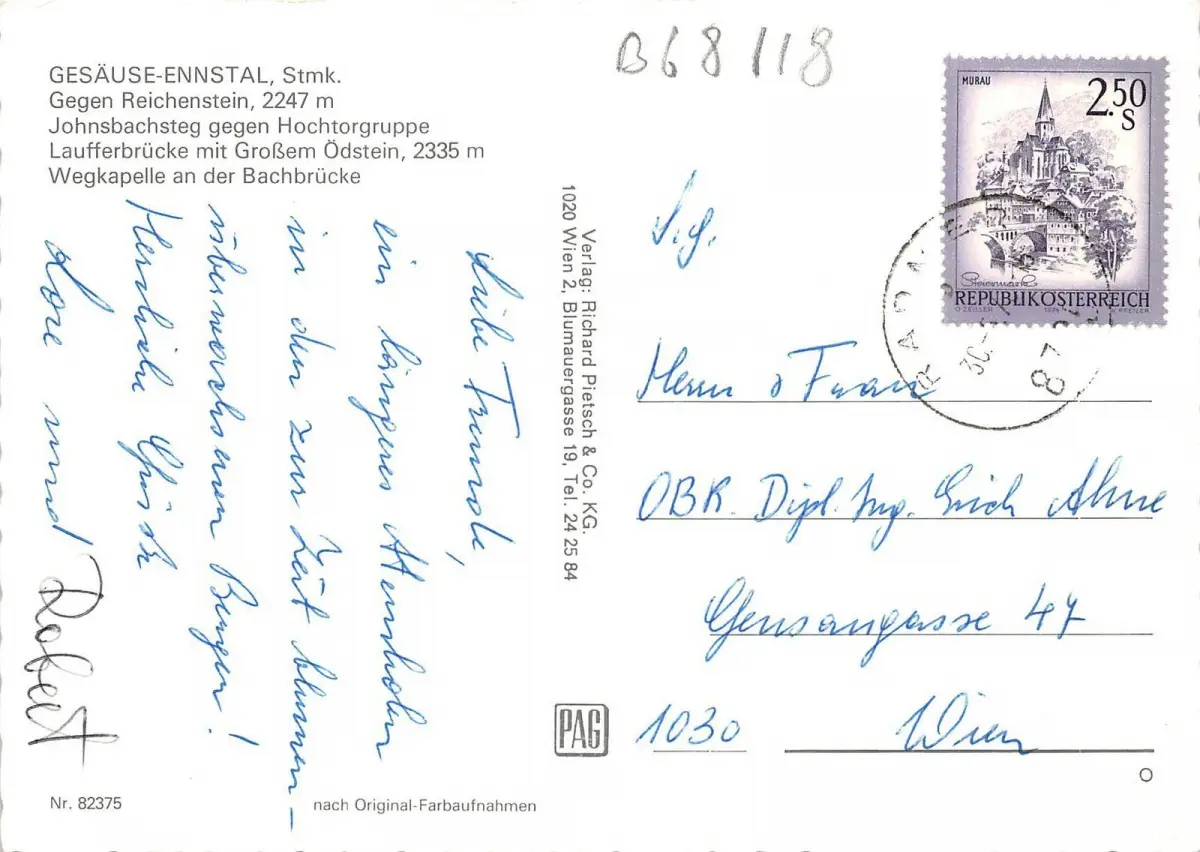 GESÄUSE-ENNSTAL, Stmk.
Gegen Reichenstein, 2247 m
Johnsbachsteg gegen Hochtorgruppe
Laufferbrücke mit Großem Ödstein, 2335 m
Wegkapelle an der Bachbrücke
Liebe Freunde,
ein längeres Atemholen
in den zur Zeit blumen-
überwachsenen Bergen!
Herzliche Grüße
Lore und
Robert
Nr. 82375
nach Original-Farbaufnahmen
Verlag: Richard Pietsch & Co. KG.
1020 Wien 2, Blumauergasse 19, Tel. 24 25 84
PAG
B68118
MURAU
2.50
S
Steiermark
REPUBLIK ÖSTERREICH
O ZEILLER
S.g.
Herrn u Frau
OBR. Dipl. Ing. Erich
Gensaugasse 47
1030 Wien